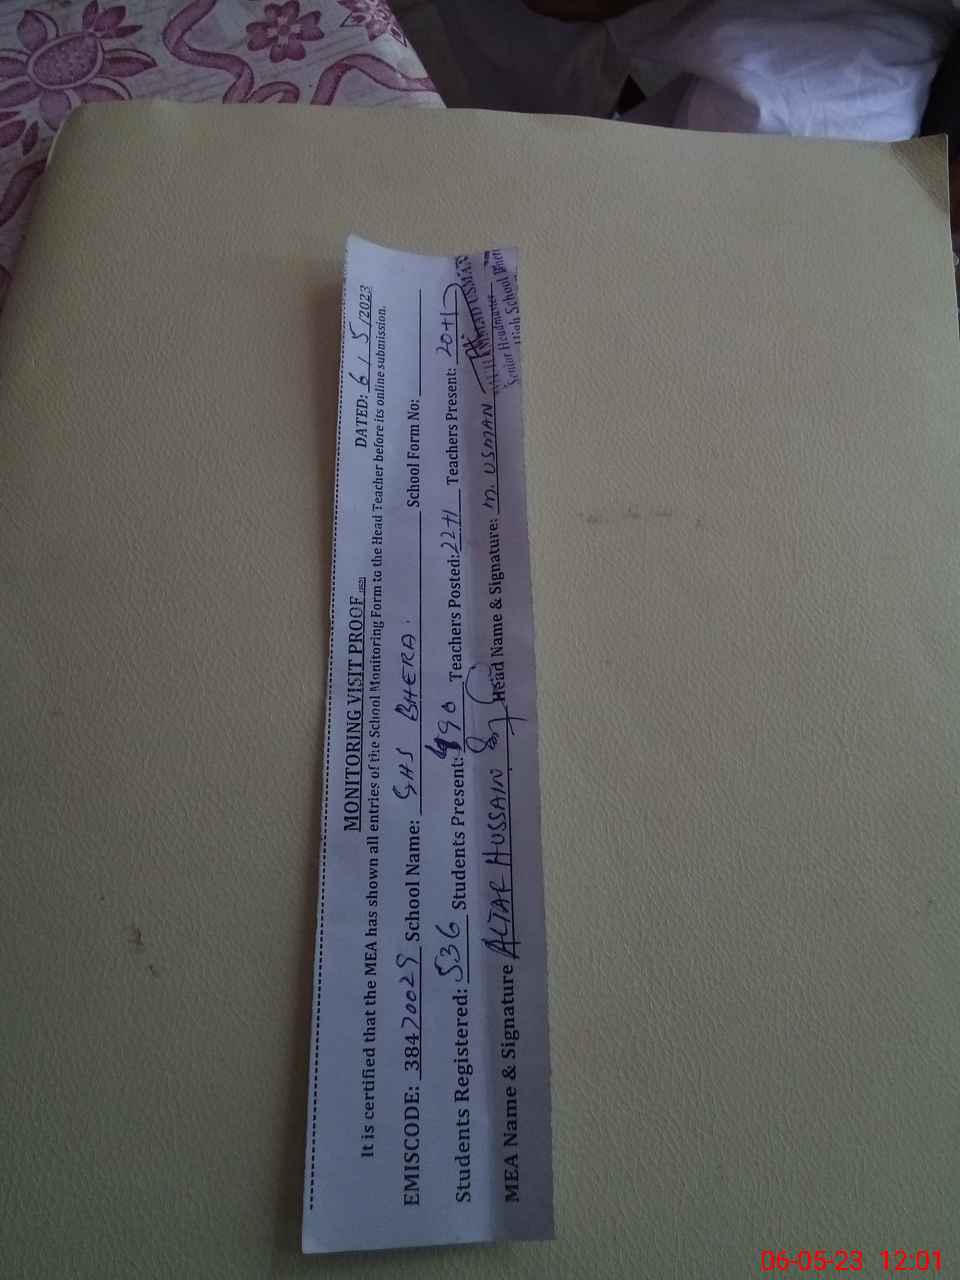 MONITORING VISIT PROOF
DATED: 6 / 5 /2023
It is certified that the MEA has shown all entries of the School Monitoring Form to the Head Teacher before its online submission.
EMISCODE: 38470029 School Name: GHS BHERA. School Form No:
Students Registered: 536 Students Present: 490 Teachers Posted: 22+1 Teachers Present: 20+1
MEA Name & Signature ALTAF HUSSAIN Head Name & Signature: M. USMAN
MUHAMMAD USMAN
Senior Headmaster
High School
06-05-23 12:01